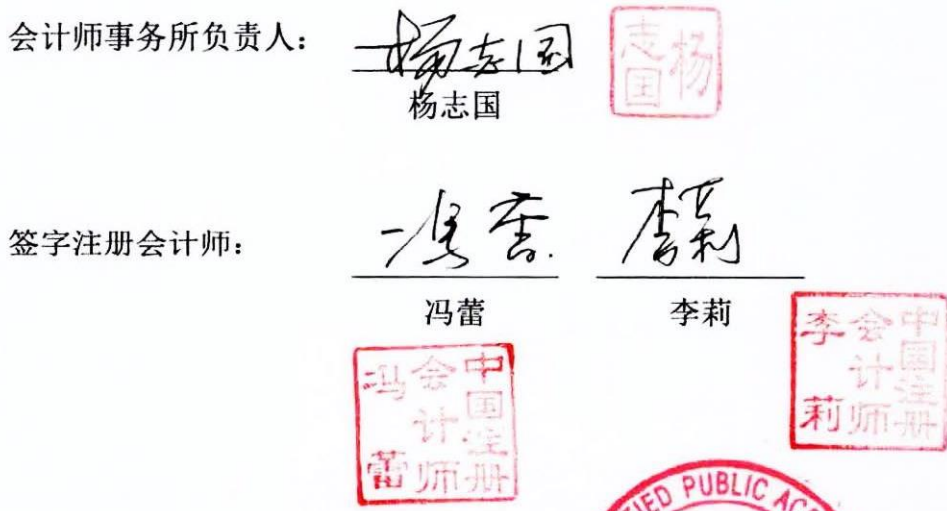 会计师事务所负责人：
杨志国
杨志国
杨志国
签字注册会计师：
冯蕾 李莉
冯蕾 李莉
中国注册会计师 李莉
中国注册会计师 冯蕾
IED PUBLIC AC